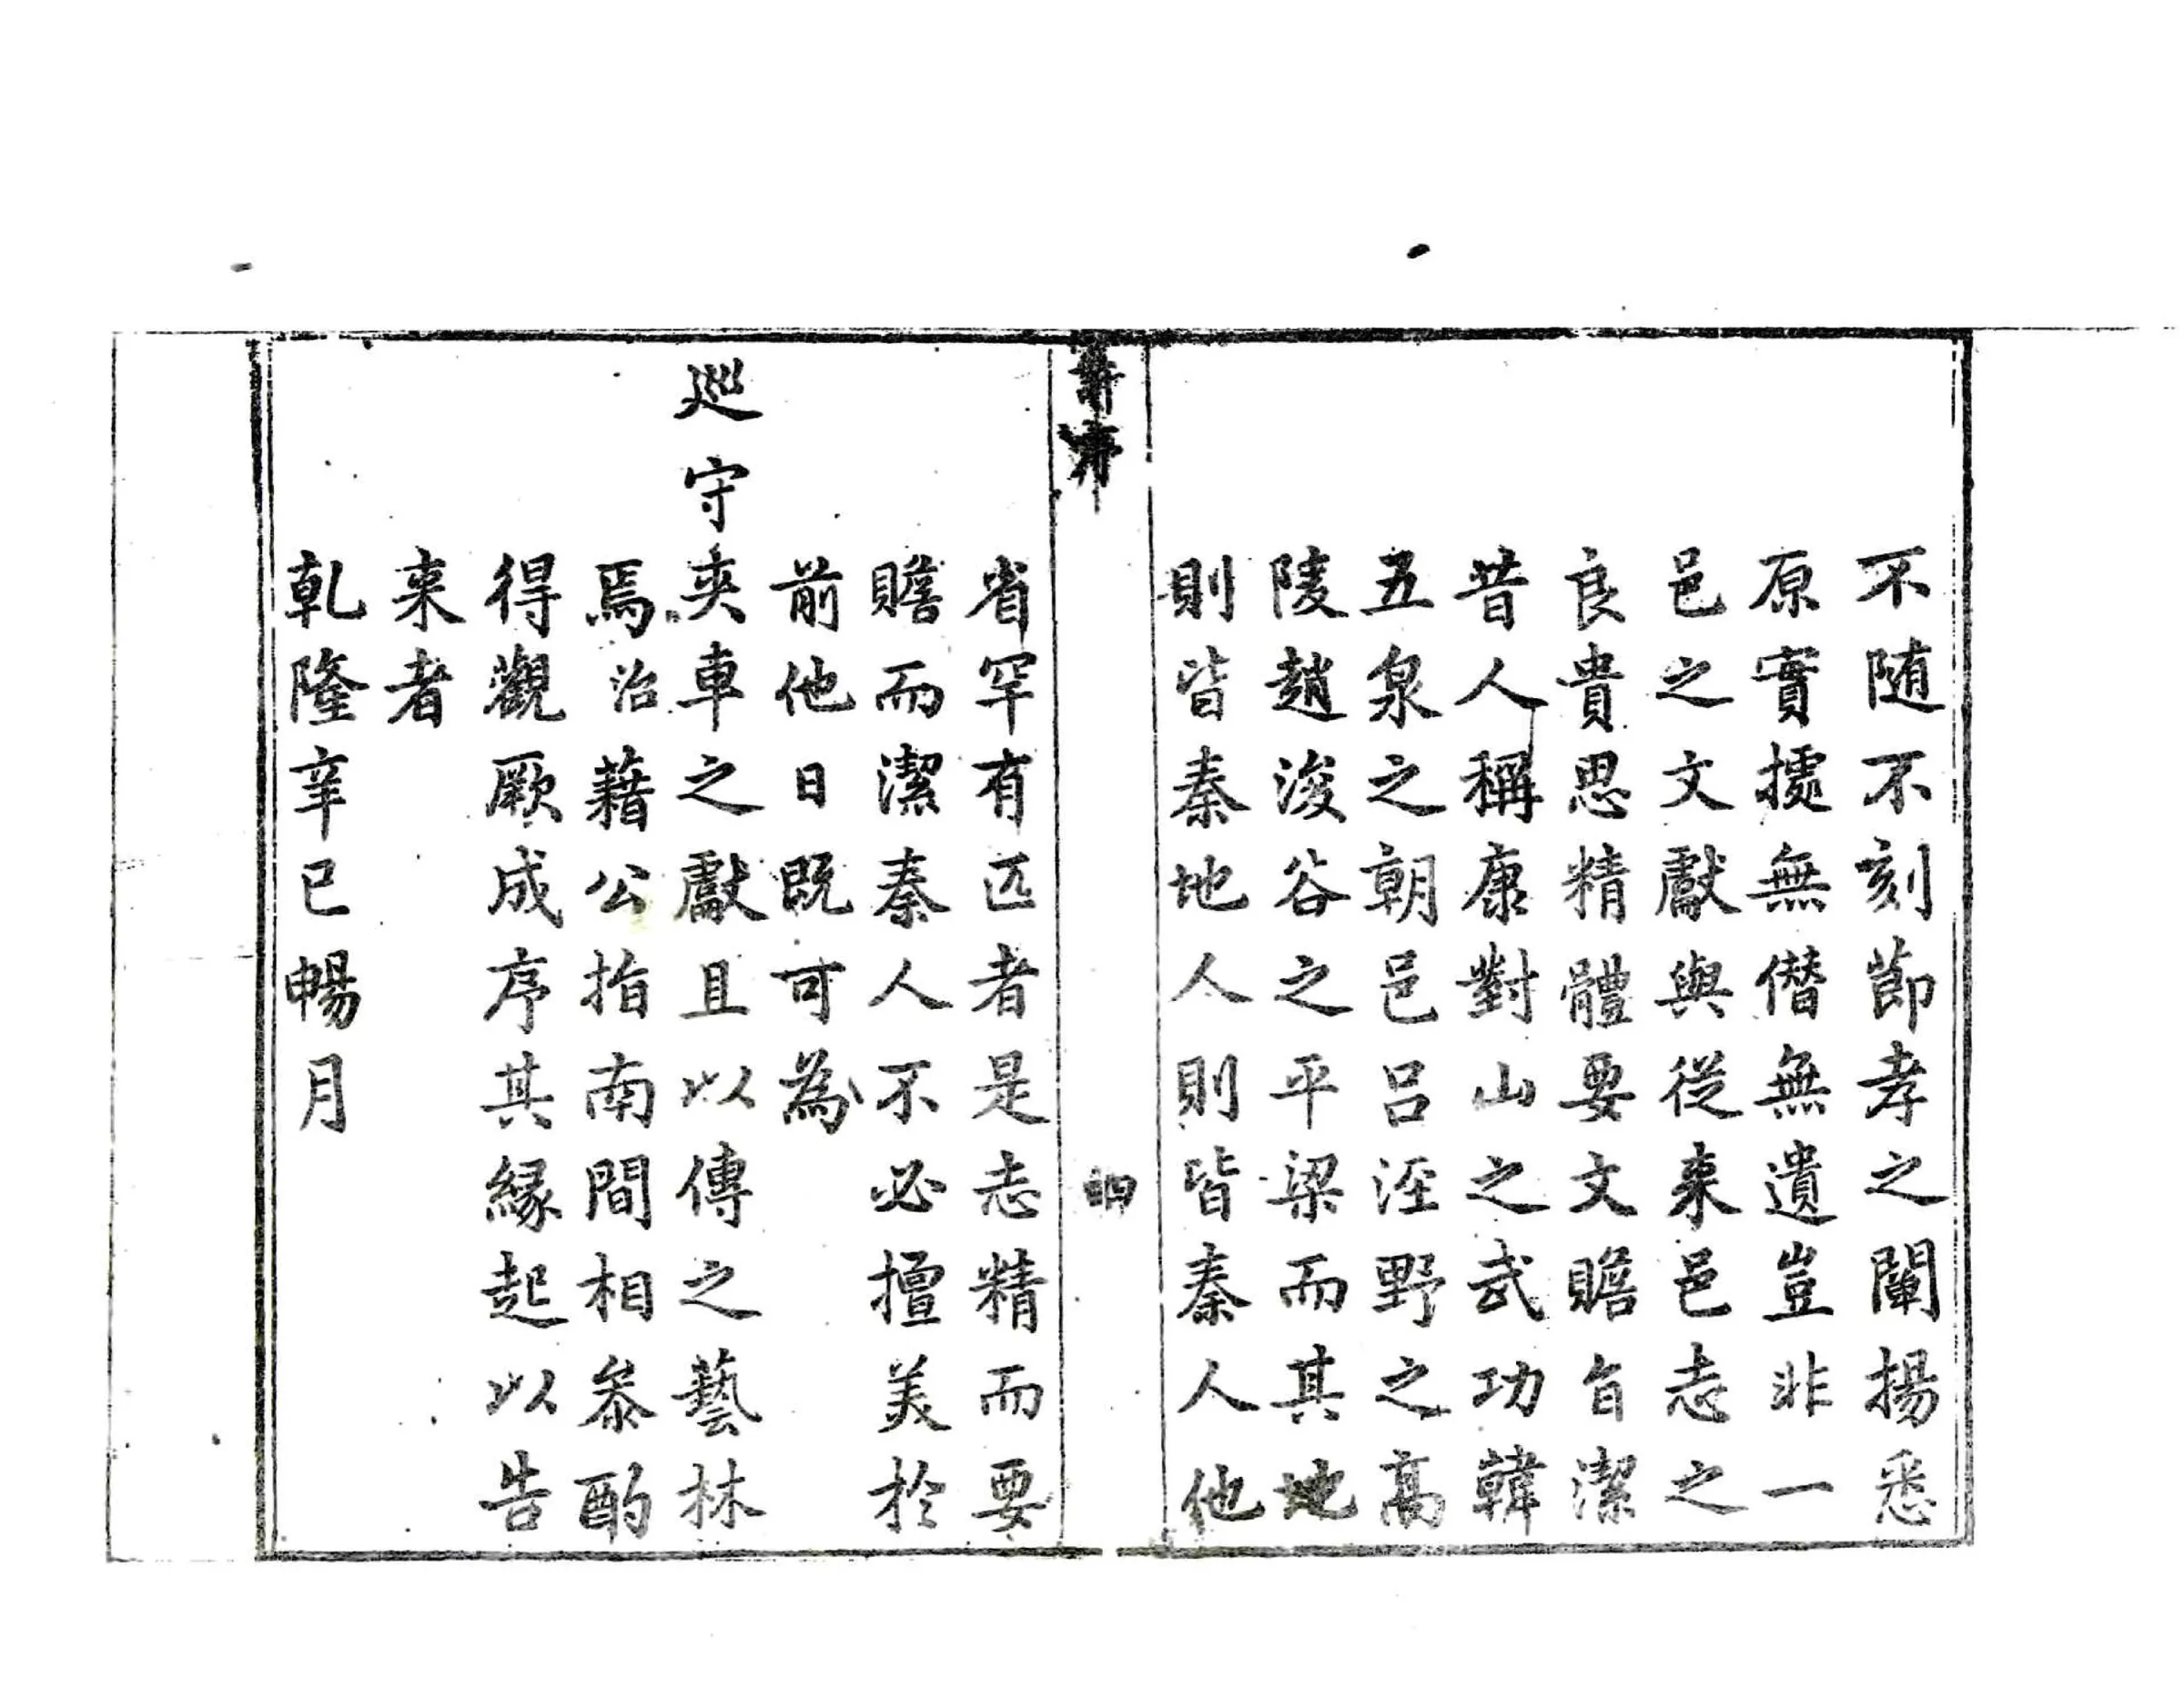 不随不刻節孝之闡揚悉
原實據無僣無遺豈非一
邑之文獻與従来邑志之
良貴思精體要文贍旨潔
昔人稱康對山之武功韓
五泉之朝邑呂涇野之髙
陵趙浚谷之平梁而其地
則皆秦地人則皆秦人他
省罕有匹者是志精而要
贍而潔秦人不必擅美於
前他日既可為
巡守夾車之獻且以傳之藝林
焉治藉公指南間相叅酌
得觀厥成序其緣起以告
来者
乹隆辛巳暢月